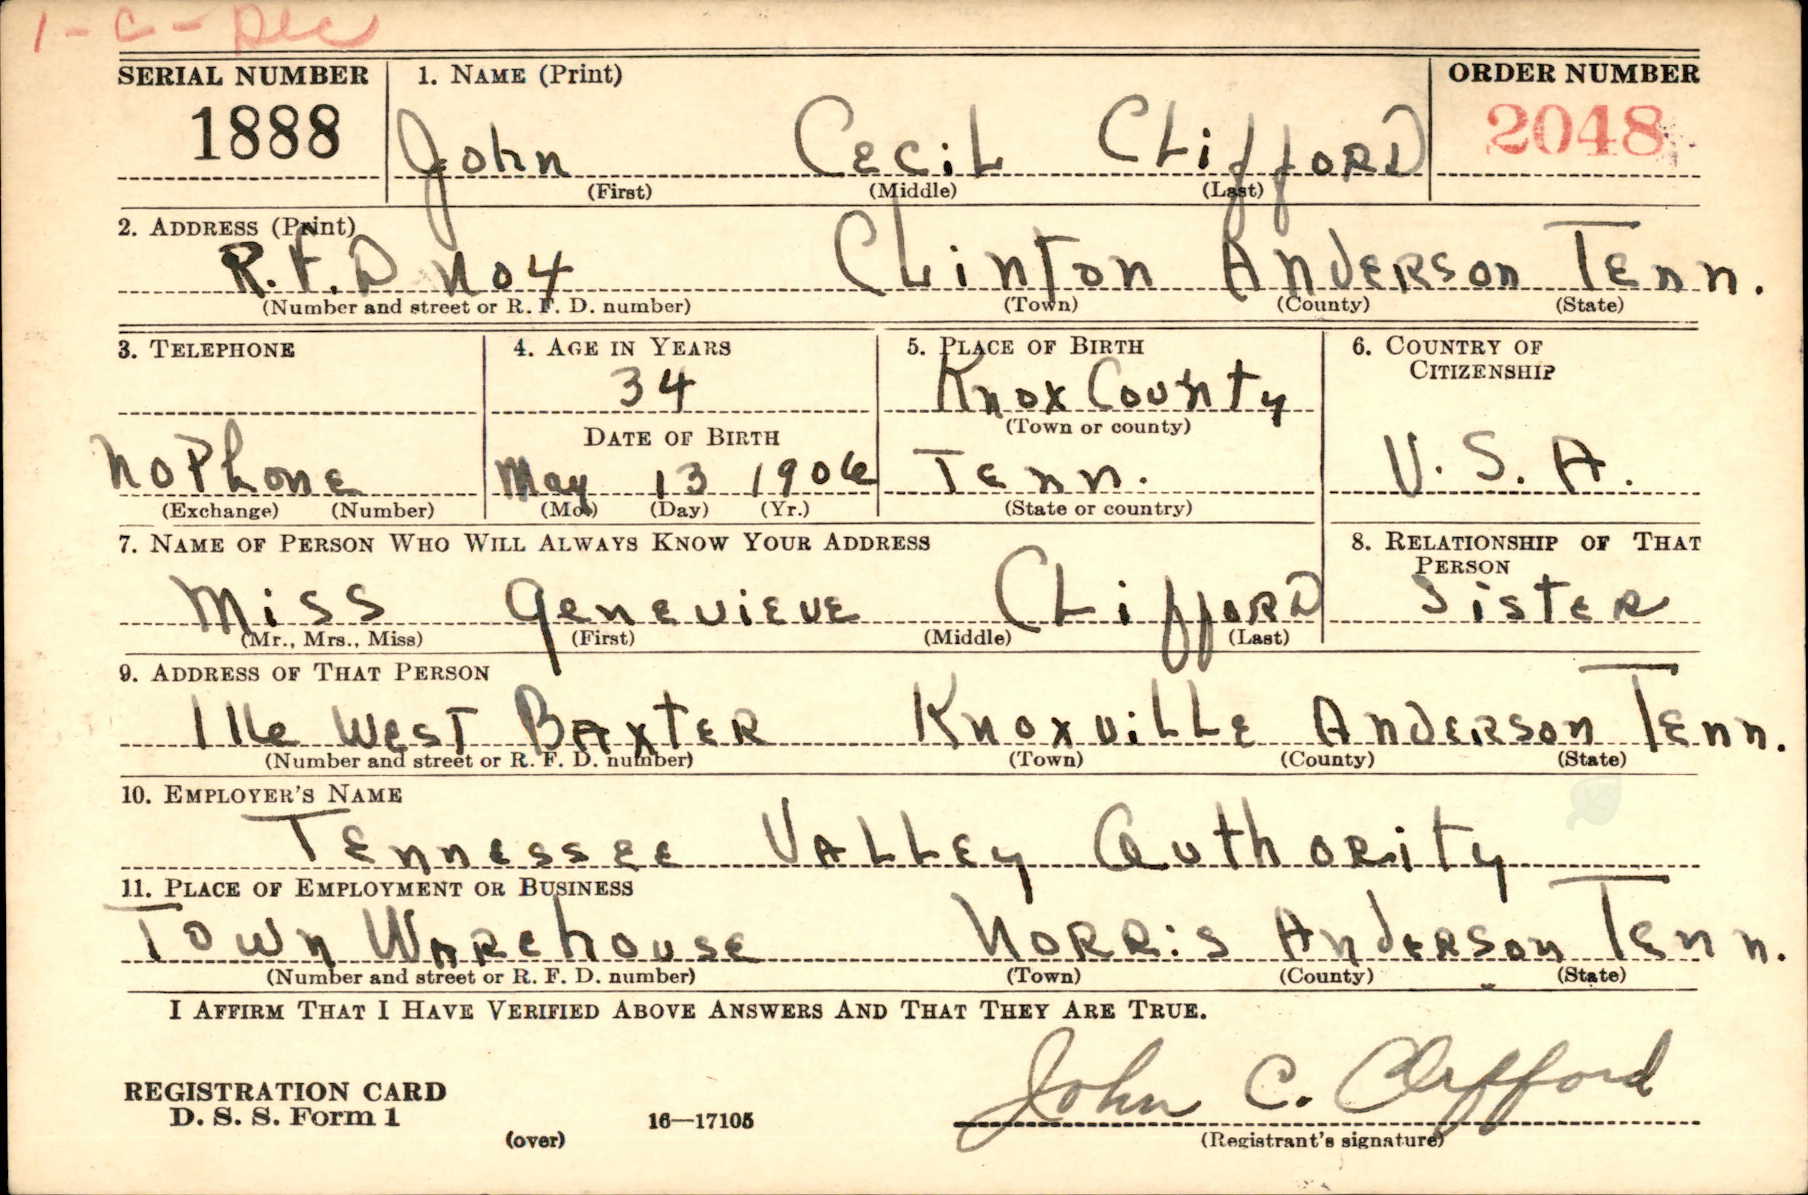 1-C-Dec
SERIAL NUMBER 1. NAME (Print) ORDER NUMBER
1888 John Cecil Clifford 2048
(First) (Middle) (Last)
2. ADDRESS (Print)
R.F.D No 4 Clinton Anderson Tenn.
(Number and street or R. F. D. number) (Town) (County) (State)
3. TELEPHONE 4. AGE IN YEARS 5. PLACE OF BIRTH 6. COUNTRY OF
CITIZENSHIP
34 Knox County
(Town or county)
DATE OF BIRTH
No Phone May 13 1906 Tenn. U.S.A.
(Exchange) (Number) (Mo.) (Day) (Yr.) (State or country)
7. NAME OF PERSON WHO WILL ALWAYS KNOW YOUR ADDRESS 8. RELATIONSHIP OF THAT
PERSON
Miss Genevieve Clifford Sister
(Mr., Mrs., Miss) (First) (Middle) (Last)
9. ADDRESS OF THAT PERSON
116 West Baxter Knoxville Anderson Tenn.
(Number and street or R. F. D. number) (Town) (County) (State)
10. EMPLOYER'S NAME
Tennessee Valley Authority
11. PLACE OF EMPLOYMENT OR BUSINESS
Town Warehouse Norris Anderson Tenn.
(Number and street or R. F. D. number) (Town) (County) (State)
I AFFIRM THAT I HAVE VERIFIED ABOVE ANSWERS AND THAT THEY ARE TRUE.
John C. Clifford
REGISTRATION CARD
D. S. S. Form 1 16—17105
(over) (Registrant's signature)